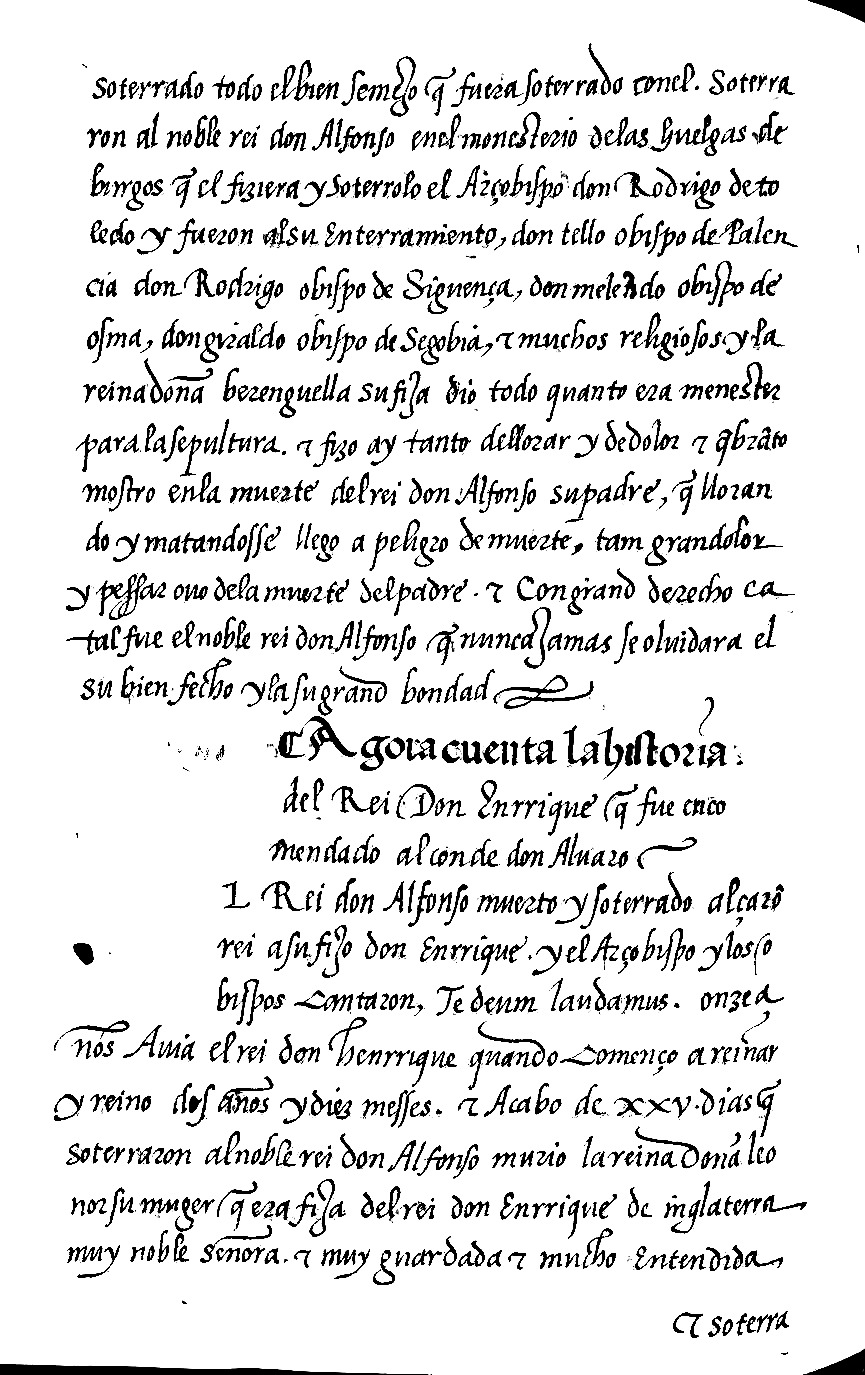 soterrado todo el bien semejo q̃ fuera soterrado con el. Soterra
ron al noble rei don Alfonso en el monesterio de las huelgas de
burgos q̃ el fiziera y soterrolo el Arçobispo don Rodrigo de to
ledo y fueron al su enterramiento, don tello obispo de Palen
cia don Rodrigo obispo de Siguença, don melendo obispo de
osma, don giraldo obispo de Segobia, ⁊ muchos religiosos y la
reina doña berenguella su fija dio todo quanto era menester
para la sepultura. ⁊ fizo ay tanto de llorar y de dolor ⁊ q̃brãto
mostro en la muerte del rei don Alfonso su padre, q̃ lloran
do y matandosse llego a peligro de muerte, tam gran dolor
y pessar ouo de la muerte del padre. ⁊ Con grand derecho ca
tal fue el noble rei don Alfonso q̃ nunca jamas se oluidara el
su bien fecho y la su grand bondad
¶ Agora cuenta la historia.
del Rei Don Enrrique q̃ fue enco
mendado al conde don Aluaro
L Rei don Alfonso muerto y soterrado alçarõ
rei a su fijo don Enrrique. y el Arçobispo y los o
bispos Cantaron, Te deum laudamus. onze a
ños Auia el rei don henrrique quando Començo a reinar
y reino dos años y diez messes. ⁊ Acabo de xxv. dias q̃
soterraron al noble rei don Alfonso murio la reina Doña leo
nor su muger q̃ era fija del rei don Enrrique de inglaterra
muy noble señora. ⁊ muy guardada ⁊ mucho Entendida,
⁊ soterra